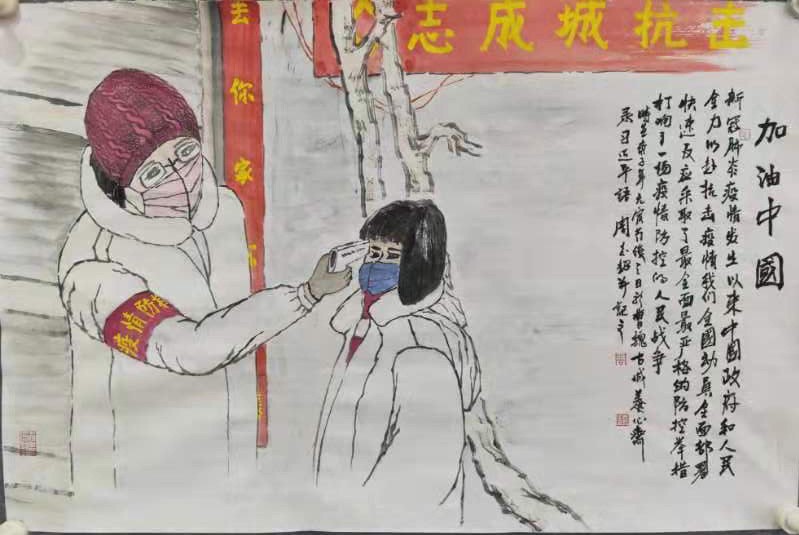 加油中國
新冠肺炎疫情发生以来中國政府和人民
全力以赴抗击疫情我们全國动员全面部署
快速反应采取了最全面最严格的防控举措
打响了一场疫情防控的人民战争
庚子年元宵节後三日於曹魏古城養心齋
录习近平語 周志并記之
志成城抗击
去你家
疫情防控